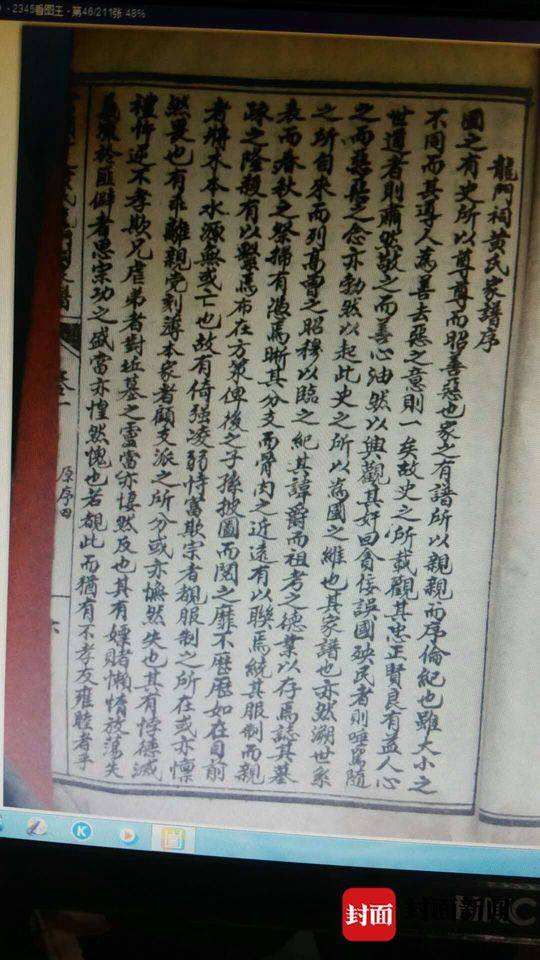 2345看图王 - 第46/211张 48%
龍門祠黄氏家譜序
國之有史所以尊尊而昭善惡也家之有譜所以親親而序倫紀也雖大小之
不同而其導人為善去惡之意則一矣故史之所載觀其忠正賢良有益人心
世道者則肅然敬之而善心油然以興觀其奸回貪佞誤國殃民者則唾罵隨
之而惡惡之念亦勃然以起此史之所以為國之維也其家譜也亦然溯世系
之所自來而列高曾之昭穆以臨之紀其諱爵而祖考之德業以存焉誌其墓
表而春秋之祭掃有憑焉晰其分支而骨肉之近遠有以聯焉統其服制而親
疎之隆殺有以繫焉布在方策俾後之子孫披圖而閱之靡不歷歷如在目前
者將木本水源無或亡也故有倚强凌弱恃富欺宗者覩服制之所在或亦懔
然畏也有乖離親党刻薄本家者顧支派之所分或亦憮然失也其有悖德滅
禮忤逆不孝欺兄虐弟者對坵墓之靈當亦悽然反也其有嫖賭懶惰放蕩失
業流於匪僻者思宗功之盛當亦惶然愧也若覩此而猶有不孝友雍睦者乎
卷一
原序四
六
封面
封面新闻